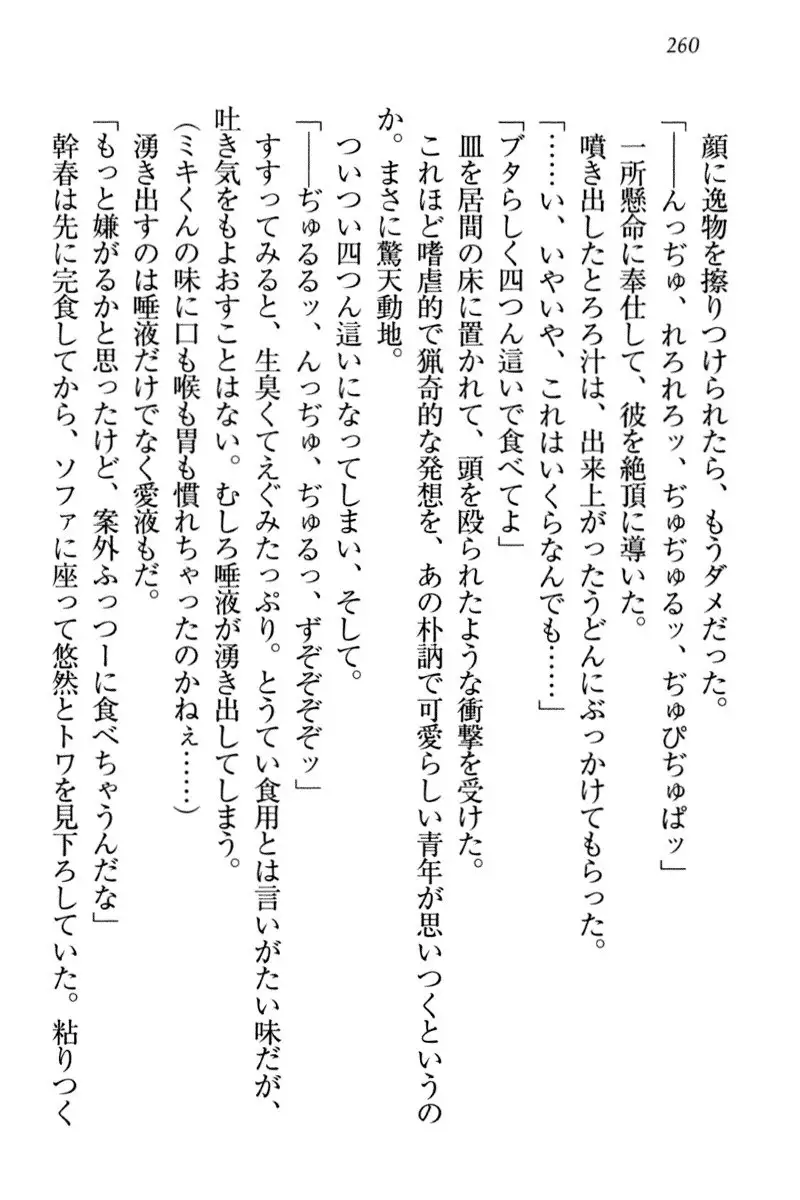 260
顔に逸物を擦りつけられたら、もうダメだった。
「――んっぢゅ、れろれろッ、ぢゅぢゅるッ、ぢゅぴぢゅぱッ」
一所懸命に奉仕して、彼を絶頂に導いた。
噴き出したとろろ汁は、出来上がったうどんにぶっかけてもらった。
「……い、いやいや、これはいくらなんでも……」
「ブタらしく四つん這いで食べてよ」
皿を居間の床に置かれて、頭を殴られたような衝撃を受けた。
これほど嗜虐的で猟奇的な発想を、あの朴訥で可愛らしい青年が思いつくというの
か。まさに驚天動地。
ついつい四つん這いになってしまい、そして。
「――ぢゅるるッ、んっぢゅ、ぢゅるっ、ずぞぞぞぞッ」
すすってみると、生臭くてえぐみたっぷり。とうてい食用とは言いがたい味だが、
吐き気をもよおすことはない。むしろ唾液が湧き出してしまう。
（ミキくんの味に口も喉も胃も慣れちゃったのかねぇ……）
湧き出すのは唾液だけでなく愛液もだ。
「もっと嫌がるかと思ったけど、案外ふっつーに食べちゃうんだな」
幹春は先に完食してから、ソファに座って悠然とトワを見下ろしていた。粘りつく